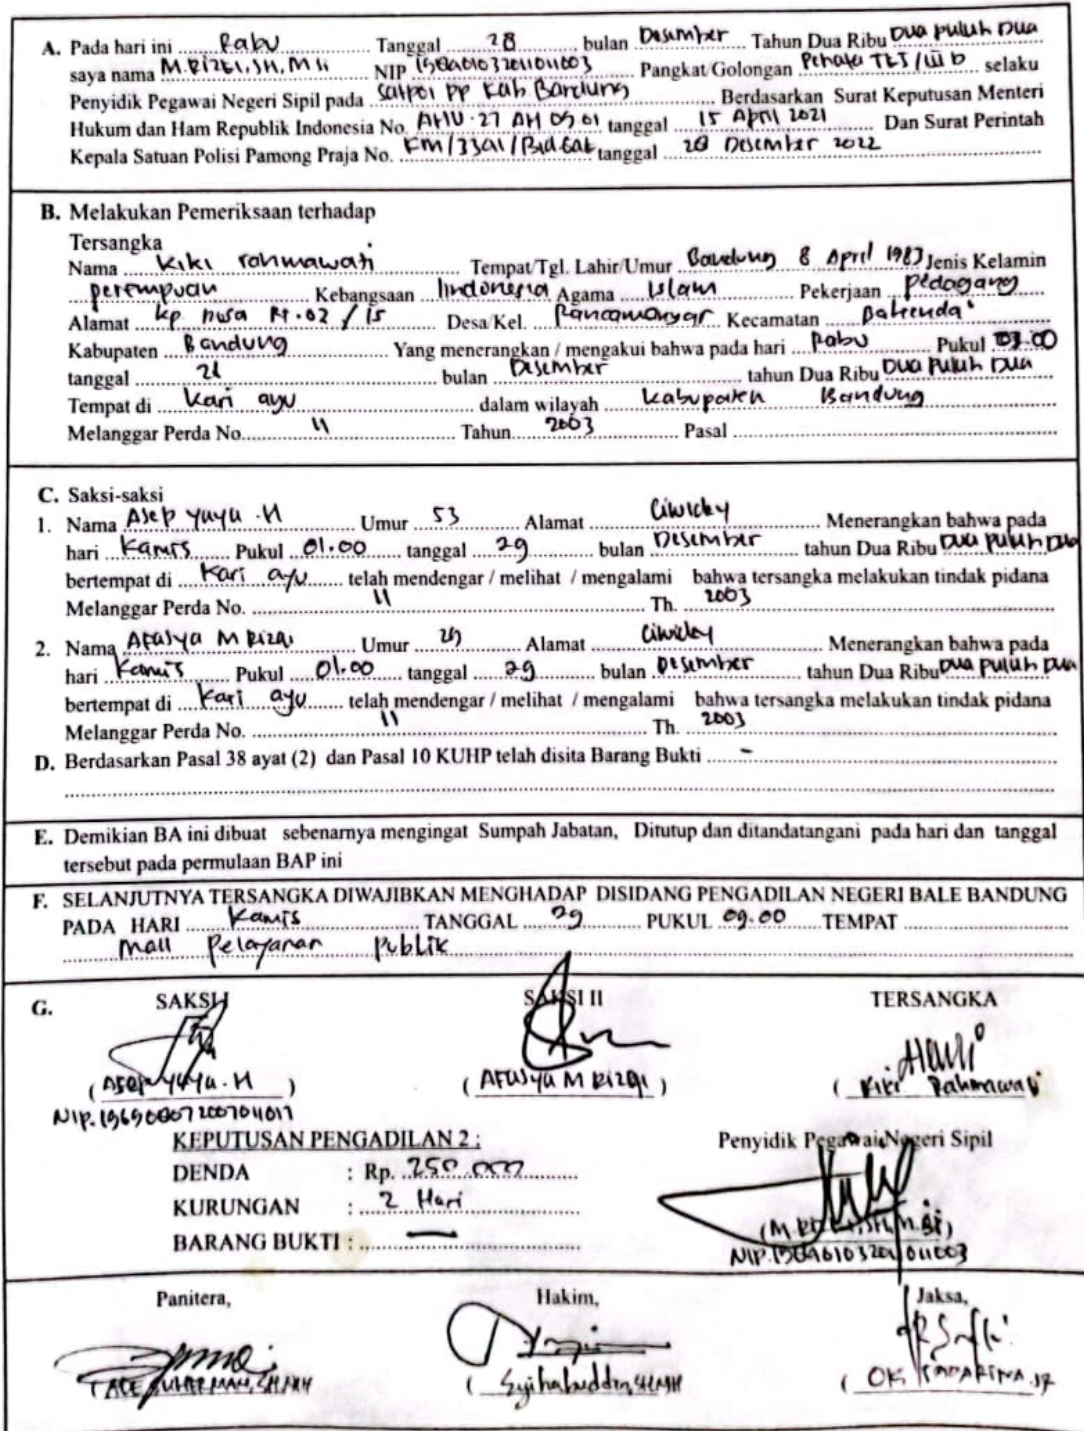 A. Pada hari ini Rabu Tanggal 28 bulan Desember Tahun Dua Ribu Dua puluh Dua
saya nama M. RIZKI, SH, M.Si NIP Pangkat/Golongan Penata TK I / III b selaku
Penyidik Pegawai Negeri Sipil pada Satpol PP Kab Bandung Berdasarkan Surat Keputusan Menteri
Hukum dan Ham Republik Indonesia No. AHU.27 AH 09 01 tanggal 15 April 2021 Dan Surat Perintah
Kepala Satuan Polisi Pamong Praja No. tanggal 28 Desember 2022
B. Melakukan Pemeriksaan terhadap
Tersangka
Nama Kiki rohmawati Tempat/Tgl. Lahir/Umur Bandung 8 April 1983 Jenis Kelamin
perempuan Kebangsaan Indonesia Agama Islam Pekerjaan Pedagang
Alamat Kp. nusa Rt.02 / 15 Desa/Kel. Rancamanyar Kecamatan
Kabupaten Bandung Yang menerangkan / mengakui bahwa pada hari Rabu Pukul
tanggal bulan Desember tahun Dua Ribu Dua Puluh Dua
Tempat di Kari ayu dalam wilayah Kabupaten Bandung
Melanggar Perda No. 11 Tahun 2003 Pasal
C. Saksi-saksi
1. Nama Asep Yuyu .H Umur 53 Alamat Ciwidey Menerangkan bahwa pada
hari Kamis Pukul 01.00 tanggal 29 bulan Desember tahun Dua Ribu Dua Puluh Dua
bertempat di Kari ayu telah mendengar / melihat / mengalami bahwa tersangka melakukan tindak pidana
Melanggar Perda No. 11 Th. 2003
2. Nama Afasya M Rizqi Umur Alamat Ciwidey Menerangkan bahwa pada
hari Kamis Pukul 01.00 tanggal 29 bulan Desember tahun Dua Ribu Dua puluh Dua
bertempat di Kari ayu telah mendengar / melihat / mengalami bahwa tersangka melakukan tindak pidana
Melanggar Perda No. 11 Th. 2003
D. Berdasarkan Pasal 38 ayat (2) dan Pasal 10 KUHP telah disita Barang Bukti -
E. Demikian BA ini dibuat sebenarnya mengingat Sumpah Jabatan, Ditutup dan ditandatangani pada hari dan tanggal
tersebut pada permulaan BAP ini
F. SELANJUTNYA TERSANGKA DIWAJIBKAN MENGHADAP DISIDANG PENGADILAN NEGERI BALE BANDUNG
PADA HARI Kamis TANGGAL 29 PUKUL 09.00 TEMPAT
Mall Pelayanan Publik
G. SAKSI I SAKSI II TERSANGKA
(Asep Yuyu . H) (Afasya M Rizqi) (Kiki Rahmawati)
NIP.
KEPUTUSAN PENGADILAN 2 : Penyidik Pegawai Negeri Sipil
DENDA : Rp. 250.000
KURUNGAN : 2 Hari
BARANG BUKTI : —
NIP.
Panitera, Hakim, Jaksa,